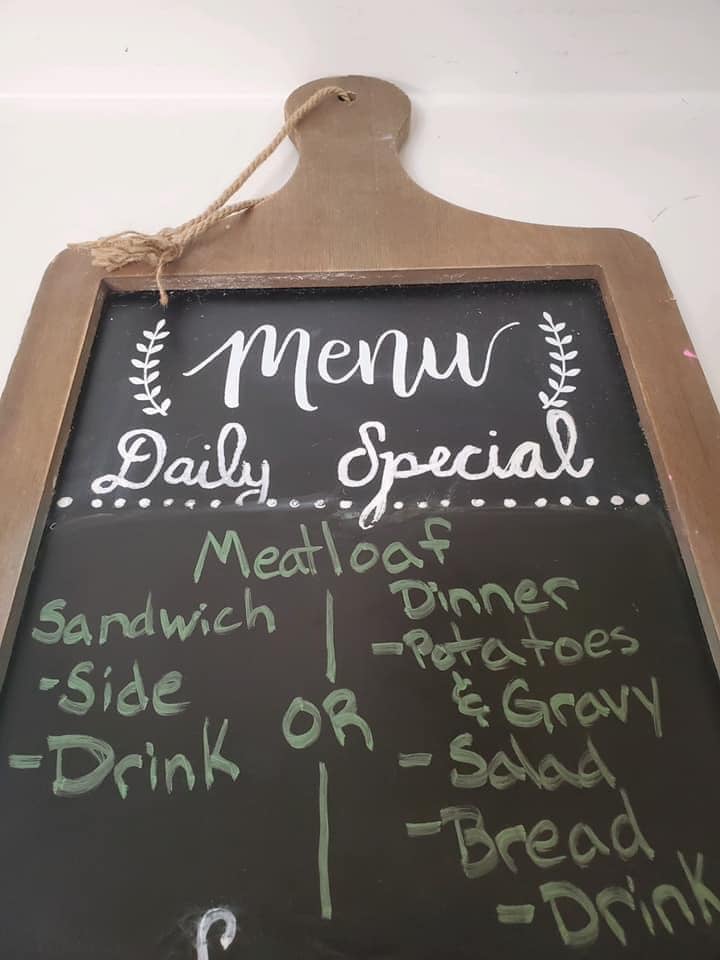 Menu
Daily Special
Meatloaf
Sandwich
-Side
-Drink
OR
Dinner
-Potatoes
& Gravy
- Salad
-Bread
-Drink